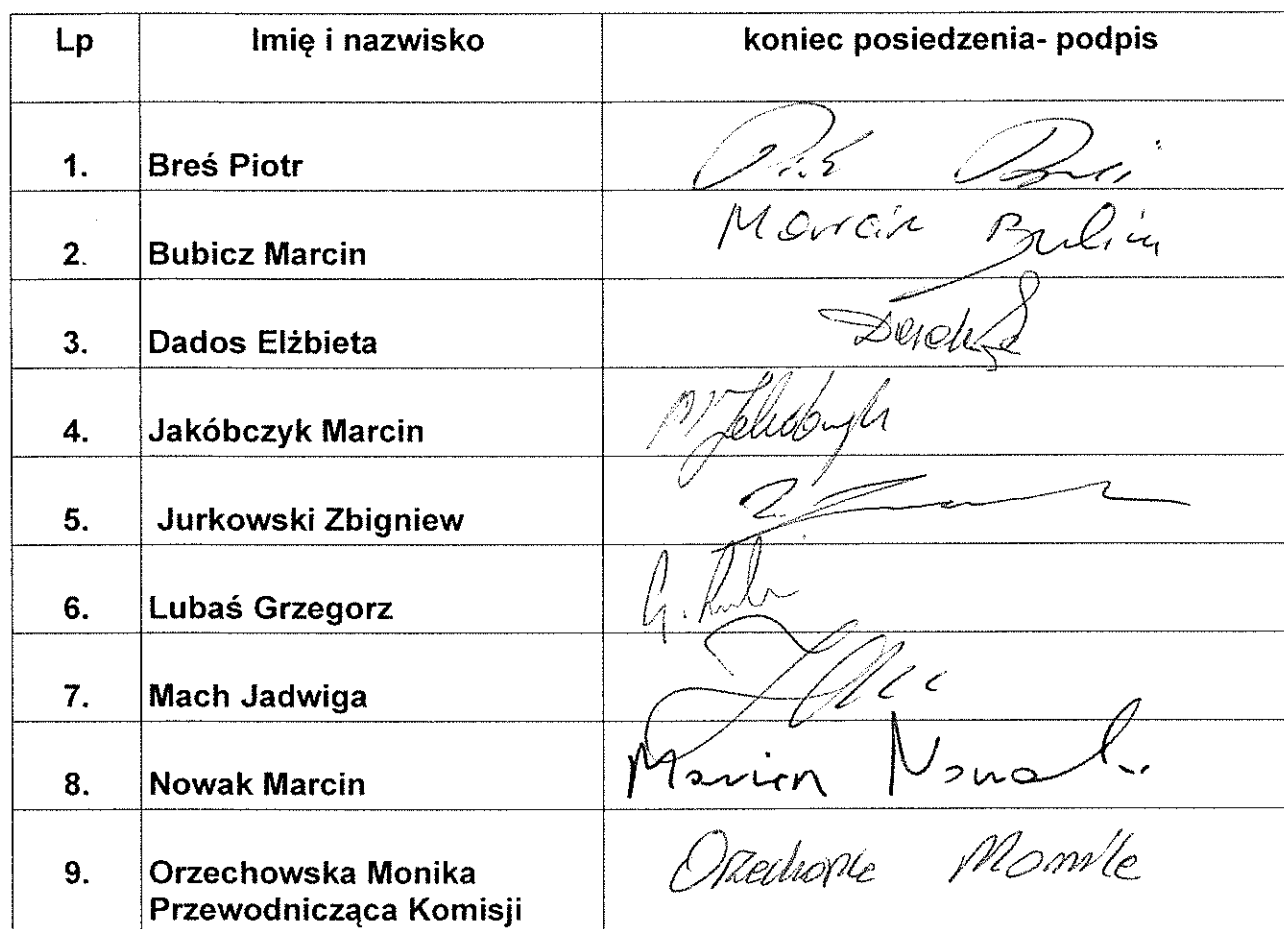 Lp Imię i nazwisko koniec posiedzenia- podpis
1. Breś Piotr
2. Bubicz Marcin Marcin
3. Dados Elżbieta
4. Jakóbczyk Marcin
5. Jurkowski Zbigniew Z.
6. Lubaś Grzegorz G.
7. Mach Jadwiga
8. Nowak Marcin Marcin Nowak
9. Orzechowska Monika
Przewodnicząca Komisji